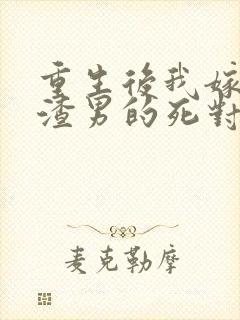 重生後我嫁
渣男的死對
麦克勒摩